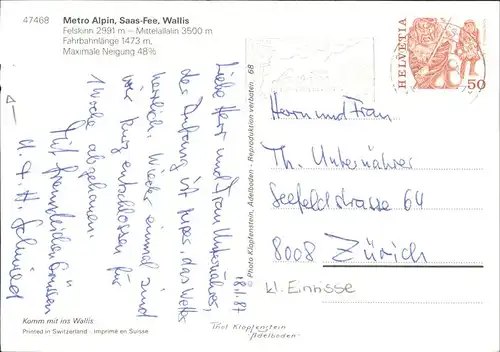 47468
Metro Alpin, Saas-Fee, Wallis
Felskinn 2991 m – Mittelallalin 3500 m
Fahrbahnlänge 1473 m,
Maximale Neigung 48%
18.1.87
Liebe Herr und Frau Unternährer,
der Anfang ist super, das Wetter
herrlich. Wieder einmal sind
wir kurz entschlossen für
1 Woche abgehauen.
Mit freundlichen Grüssen
u. + H. Schmied
Komm mit ins Wallis
Printed in Switzerland - Imprimé en Suisse
© Photo Klopfenstein, Adelboden - Reproduktion verboten 68
Photo Klopfenstein
Adelboden
HELVETIA
50
Herrn und Frau
Th. Unternährer
Seefeldstrasse 64
8008 Zürich
W. Einrisse